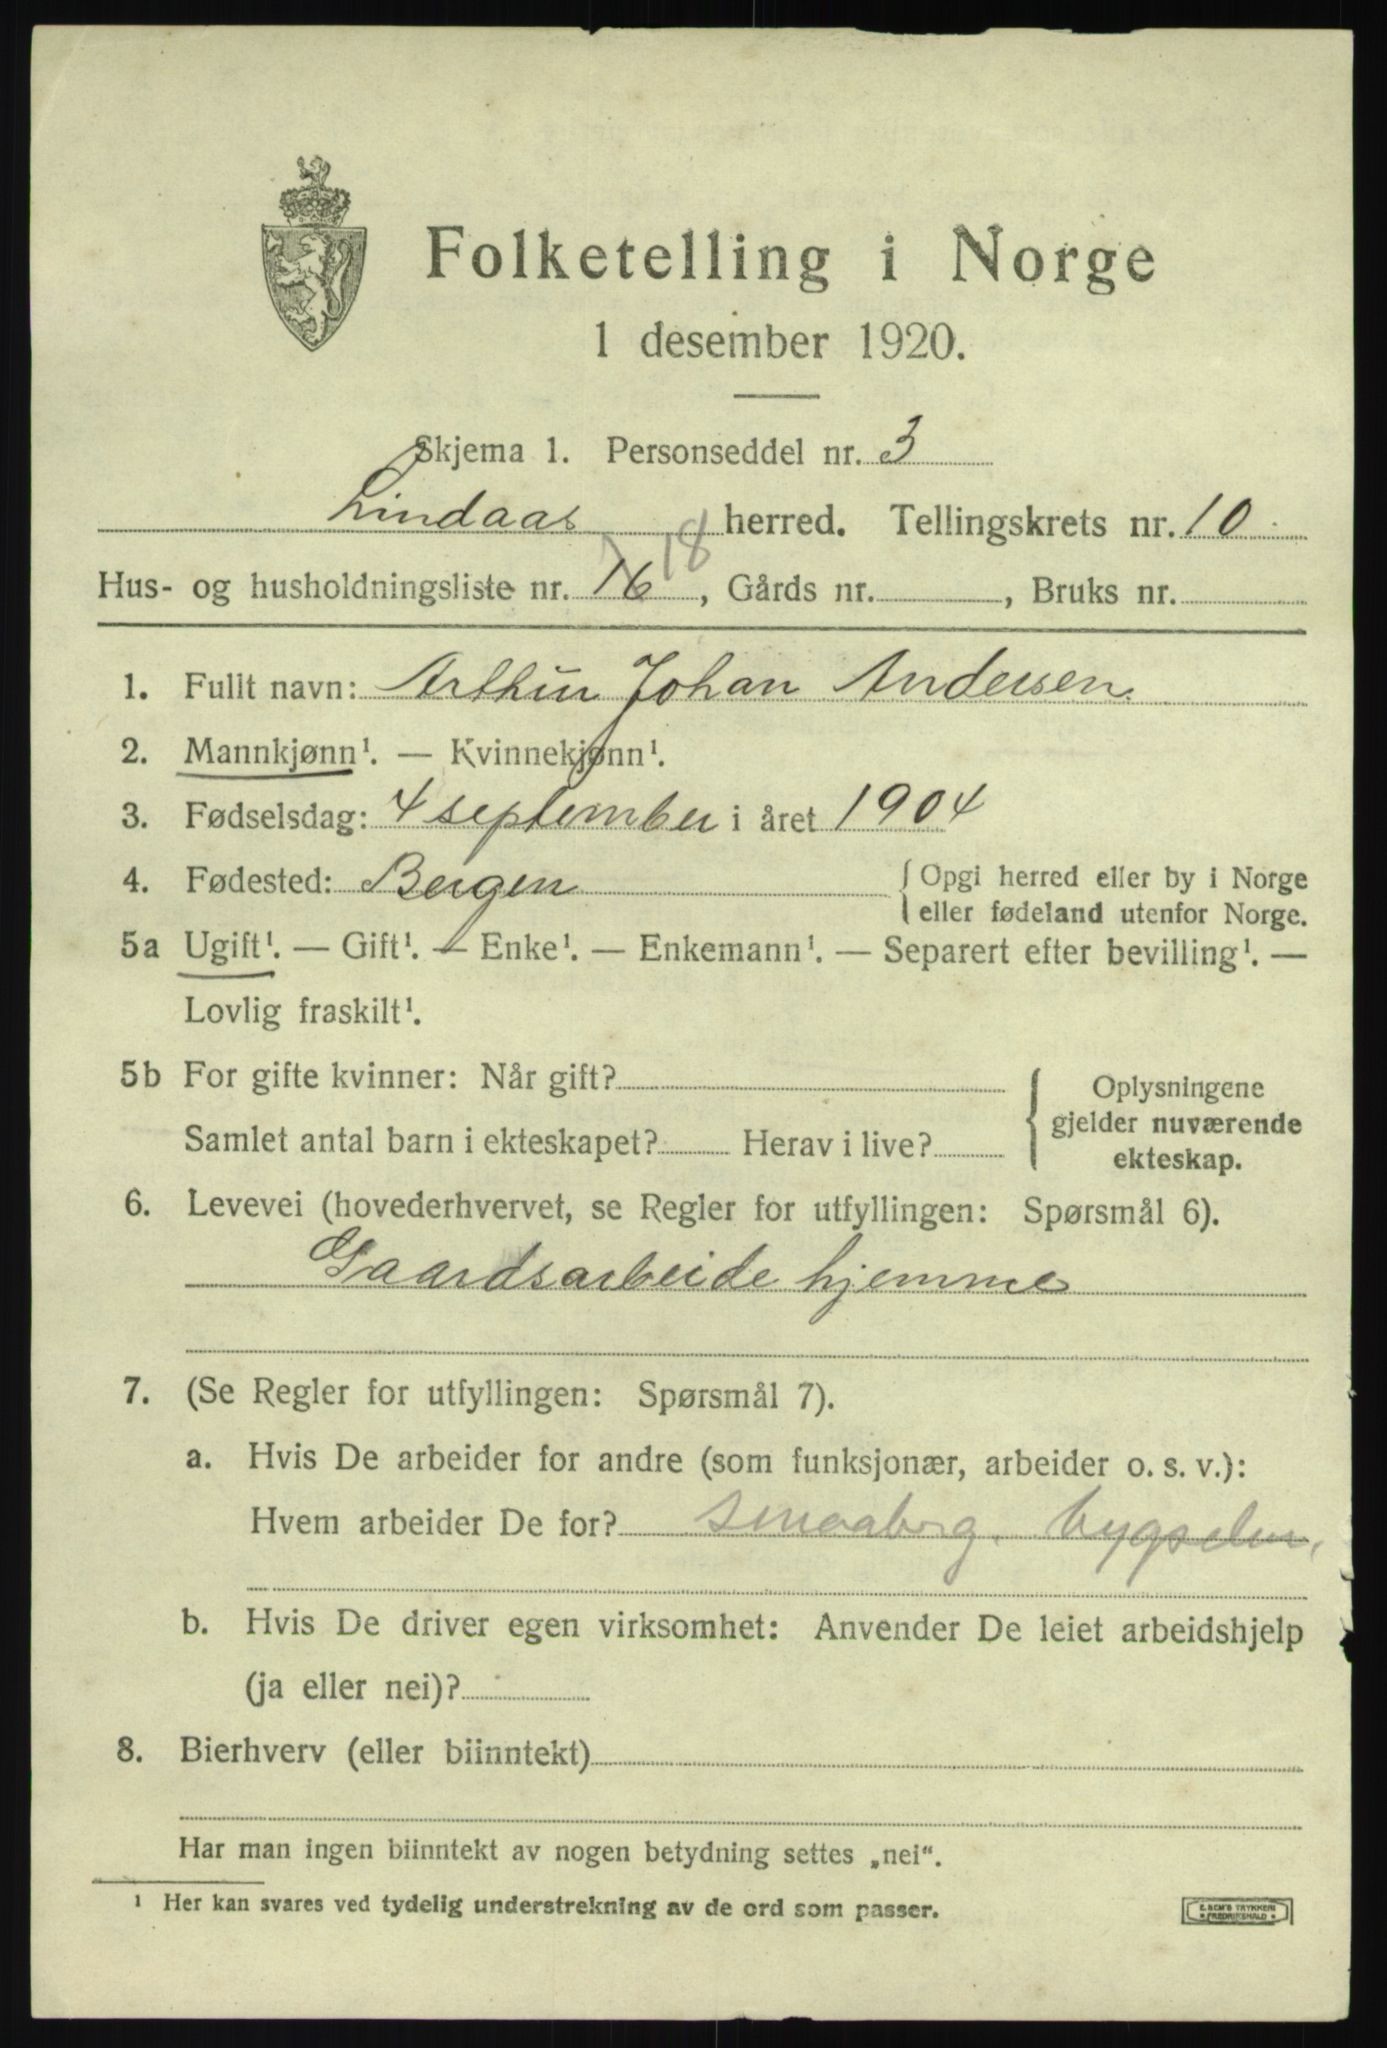 Folketelling i Norge
1 desember 1920.
Skjema 1. Personseddel nr. 3
Lindaas herred. Tellingskrets nr. 10
Hus- og husholdningsliste nr. 16 18, Gårds nr. , Bruks nr.
1. Fullt navn: Arthur Johan Andersen.
2. Mannkjønn¹. — Kvinnekjønn¹.
3. Fødselsdag: 4 september i året 1904
4. Fødested: Bergen { Opgi herred eller by i Norge
eller fødeland utenfor Norge.
5a Ugift¹. — Gift¹. — Enke¹. — Enkemann¹. — Separert efter bevilling¹. —
Lovlig fraskilt¹.
5b For gifte kvinner: Når gift? { Oplysningene
gjelder nuværende
Samlet antal barn i ekteskapet? Herav i live?
ekteskap.
6. Levevei (hovederhvervet, se Regler for utfyllingen: Spørsmål 6).
Gaardsarbeide hjemme
7. (Se Regler for utfyllingen: Spørsmål 7).
a. Hvis De arbeider for andre (som funksjonær, arbeider o. s. v.):
Hvem arbeider De for? smaaberg. bygselm.
b. Hvis De driver egen virksomhet: Anvender De leiet arbeidshjelp
(ja eller nei)?
8. Bierhverv (eller biinntekt)
Har man ingen biinntekt av nogen betydning settes „nei“.
¹ Her kan svares ved tydelig understrekning av de ord som passer.
E. SEM'S TRYKKERI
FREDRIKSHALD